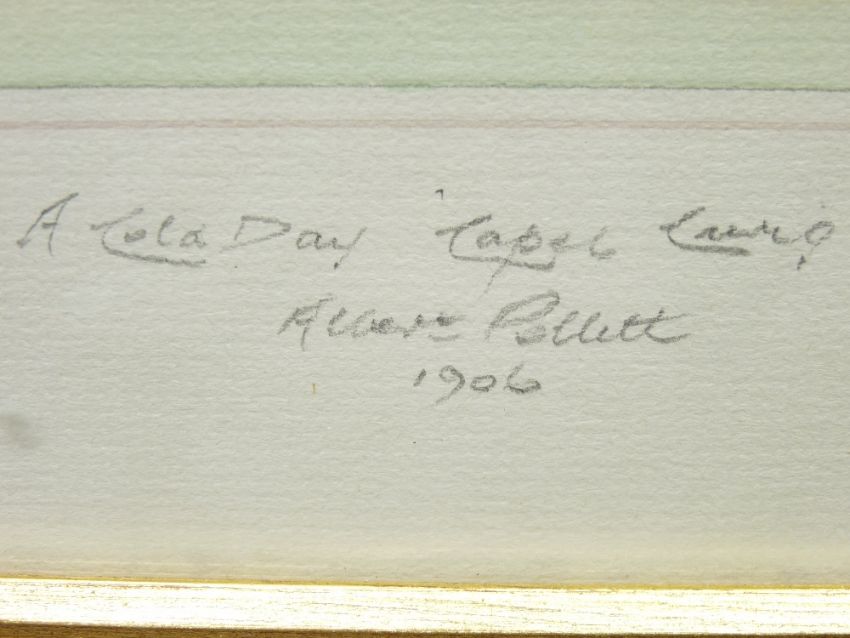 A Cold Day Capel Curig
Albert Pollett
1906